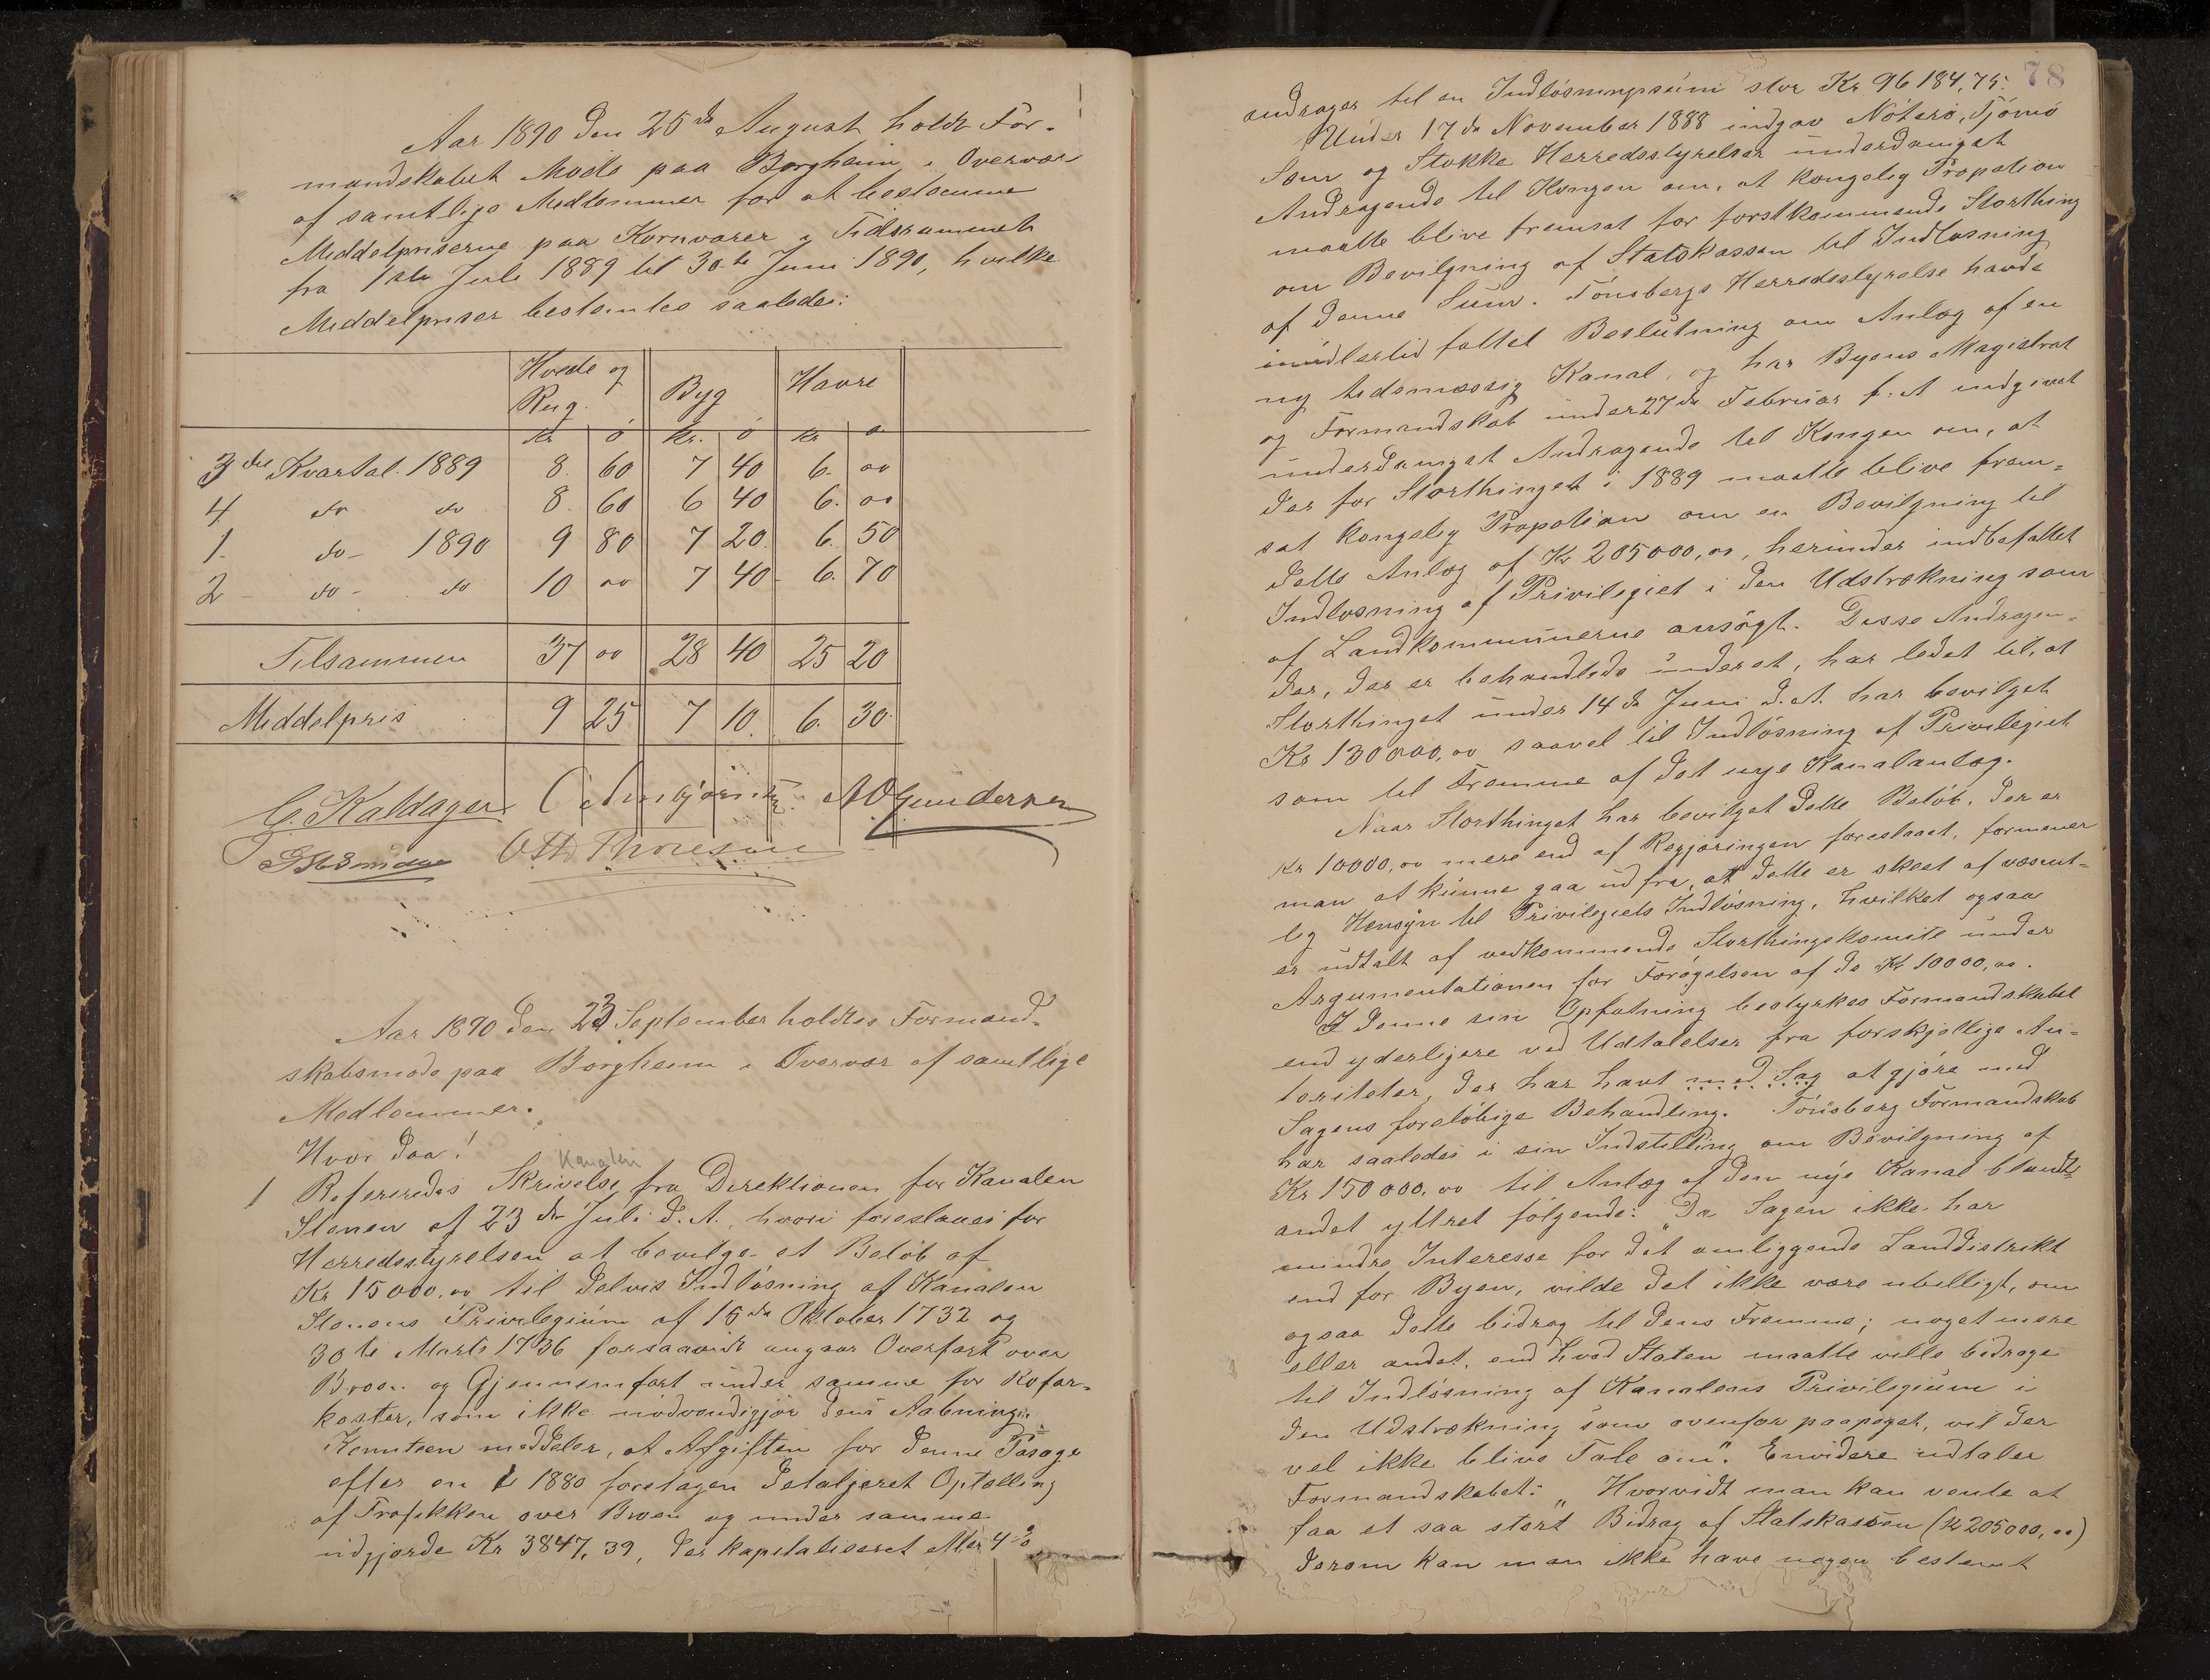 Aar 1890 den 25de August holdt For-
mandskabet Møde paa Borgheim i Overvær
af samtlige Medlemmer for at bestemme
Middelpriserne paa Kornvarer i Tidsrummet
fra 1ste Juli 1889 til 30te Juni 1890, hvilke
Middelpriser bestemtes saaledes:
Hvede og Rug. Byg Havre
Kr ø kr. ø kr ø
3die Kvartal 1889 8. 60 7 40 6. 00
4. do do 8. 60 6 40 6. 00
1. do- 1890 9 80 7 20. 6. 50
2 - do - do 10 00 7 40 - 6. 70
Tilsammen 37 00 28 40 25 20
Middelpris 9 25 7 10. 6. 30
C. Kaldager A O Gundersen
Otto Thoresen
Aar 1890 den 23 September holdtes Formand-
skabsmøde paa Borgheim i Overvær af samtlige
Medlemmer.
Hvor daa!
Kanalen
1 Refereredes Skrivelse fra Direktionen for Kanalen
Stenen af 23de Juli d. A., hvori foreslaaes for
Herredsstyrelsen at bevilge et Beløb af
Kr 15000,00 til delvis Indløsning af Kanalen
Stenens Privilegium af 15de Oktober 1732 og
30te Marts 1736 forsaavidt angaar Overfart over
Broen og Gjennemfart under samme for Rofar-
koster, som ikke nødvendiggjør dens Aabning.
Komiteen meddeler, at Afgiften for denne Pasage
efter en i 1880 foretagen detaljeret Optælling
af Trafikken over Broen og under samme
udgjorde Kr 3847,39, der kapitaliseret efter 4 %
78
andrager til en Indløsningssum stor Kr 96184,75.
Under 17de November 1888 indgav Nøterø, Tjømø
Sem og Stokke Herredsstyrelser underdanigst
Andragende til Kongen om, at kongelig Proposition
maatte blive fremsat for førstkommende Storthing
om Bevilgning af Statskassen til Indløsning
af denne Sum. Tønsbergs Herredsstyrelse havde
imidlertid fattet Beslutning om Anlæg af en
ny tidsmæssig Kanal, og har Byens Magistrat
og Formandskab under 27de Februar f. A indgivet
underdanigst Andragende til Kongen om, at
der for Storthinget i 1889 maatte blive frem-
sat kongelig Proposition om en Bevilgning til
dette Anlæg af Kr 205000,00, herunder indbefattet
Indløsning af Privilegiet i den Udstrækning som
af Landkommunerne ansøgt. Disse Andragen-
der, der er behandlede underet, har ledet til, at
Storthinget under 14de Juni d. A. har bevilget
Kr 130000,00 saavel til Indløsning af Privilegiet
som til Fremme af det nye Kanalanlæg.
Naar Storthinget har bevilget dette Beløb, der er
Kr 10000,00 mere end af Regjeringen foreslaaet, formener
man at kunne gaa ud fra, at dette er skeet af væsent-
lig Hensyn til Privilegiets Indløsning, hvilket ogsaa
er udtalt af vedkommende Storthingskomite under
Argumentationen for Forøgelsen af de Kr 10000,00.
I denne sin Opfatning bestyrkes Formandskabet
end yderligere ved Udtalelser fra forskjellige Au-
toriteter, der har havt med Sag at gjøre med
Sagens foreløbige Behandling. Tønsberg Formandskab
har saaledes i sin Indstilling om Bevilgning af
Kr 150000,00 til Anlæg af den nye Kanal blandt
andet yttret følgende: "Da Sagen ikke har
mindre Interesse for det omliggende Landdistrikt
end for Byen, vilde det ikke være ubilligt, om
ogsaa dette bidrog til dens Fremme; noget mere
eller andet, end hvad Staten maatte ville bidrage
til Indløsning af Kanalens Privilegium i
den Udstrækning som ovenfor paapeget, vil der
vel ikke blive Tale om". Envidere udtaler
Formandskabet: "Hvorvidt man kan vente at
faa et saa stort Bidrag af Statskassen (Kr 205000,00)
derom kan man ikke have nogen bestemt